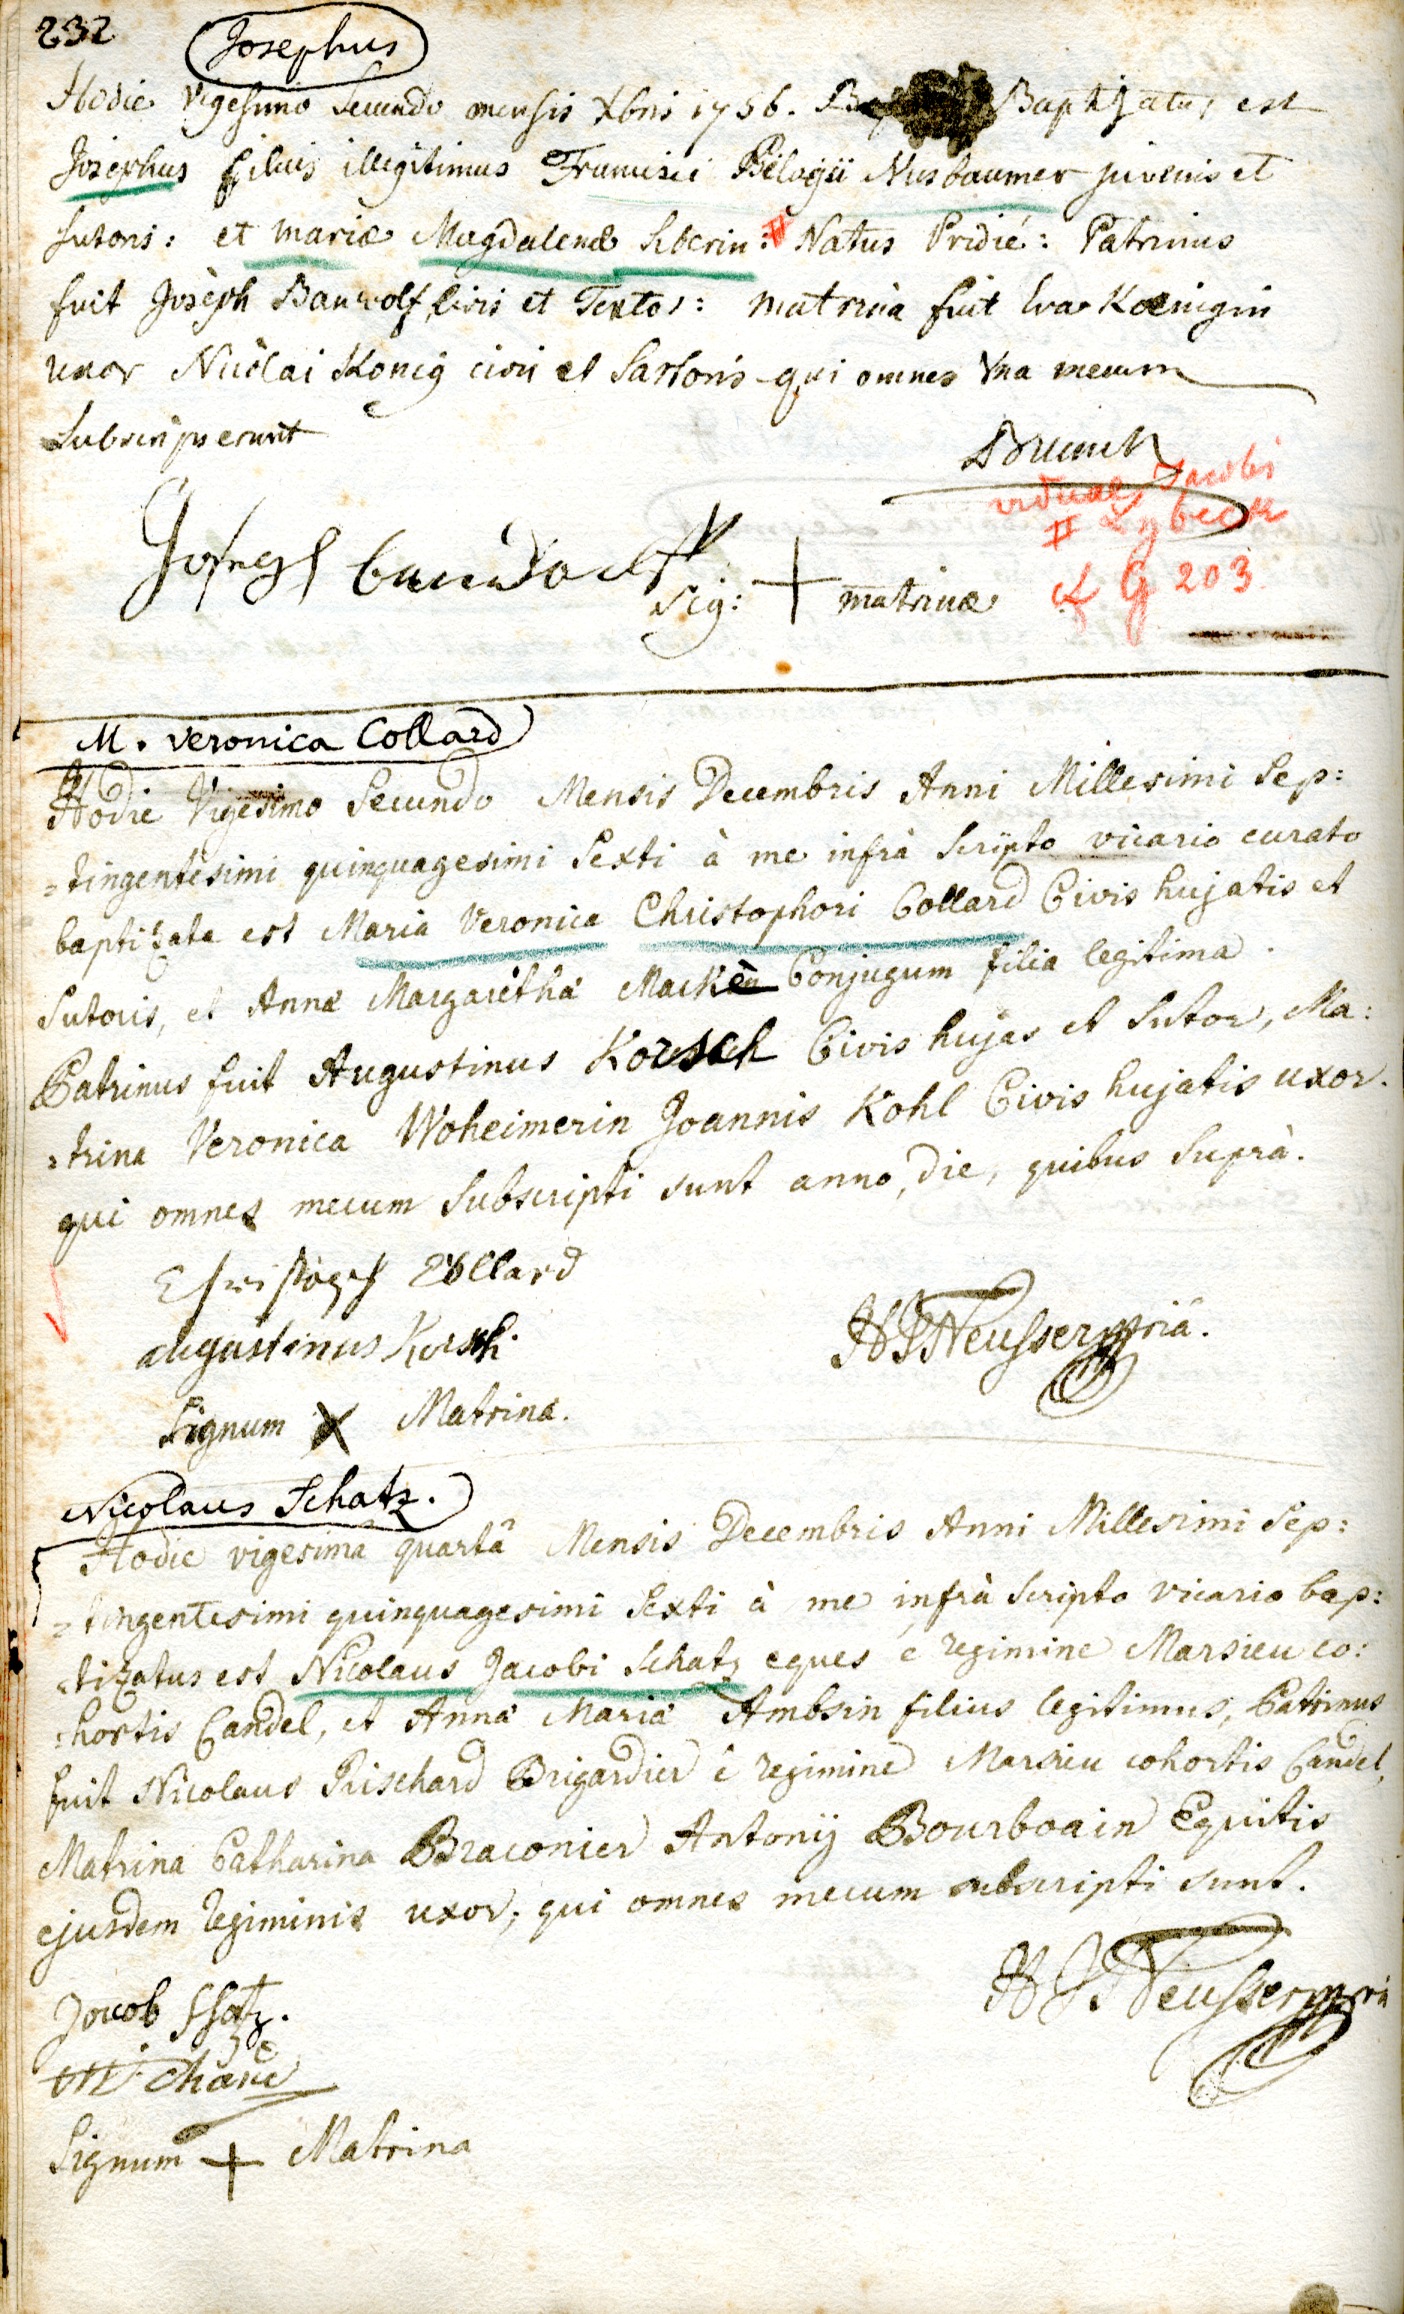 232
Josephus
Hodie vigesimo secundo mensis Xbris 1756. Baptizatus est
Josephus filius illegitimus Francisci Pelagii Nusbaumer juvenis et
sutoris: et mariæ Magdalenæ Siberin: # Natus Pridié: Patrinus
fuit Josèph Bauwolf civis et Textor: matrina fuit Eva Kœnigin
uxor Nicolai Konig civis et Sartoris qui omnes Vna mecum
Subscripserunt
viduæ Jacobi
# Lybeck
Sig: + matrinæ
G 203
M. Veronica Collard
Hodie Vigesimo Secundo Mensis Decembris Anni Millesimi Sep:
=tingentesimi quinquagesimi Sexti à me infrà Scripto vicario curato
baptizata est Maria Veronica Christophori Collard Civis hujatis et
Sutoris, et Annæ Margarethæ Macken Conjugum filia legitima.
Patrinus fuit Augustinus Korsch Civis hujas et Sutor, Ma:
=trina Veronica Woheimerin Joannis Kohl Civis hujatis uxor.
qui omnes mecum Subscripti sunt anno, die, quibus Suprà.
Christoph Collard
augustinus Korsch.
HJ Neusser mpriâ.
Signum X Matrinæ.
Nicolaus Schatz.
Hodie vigesimâ quartâ Mensis Decembris Anni Millesimi Sep:
=tingentesimi quinquagesimi Sexti à me infrà Scripto vicario bap:
=tizatus est Nicolaus Jacobi Schatz eques è regimine Marsieu co:
=hortis Candel, et Annæ Mariæ Ambsin filius legitimus, Patrinus
fuit Nicolaus Prischard Brigardier è regimine Marsieu cohortis Candel,
Matrina Catharina Braconier Antonij Bourboain Equitis
ejusdem regiminis uxor, qui omnes mecum subscripti sunt.
HJ Neusser mpriâ
Jacob Schatz.
Signum + Matrinæ